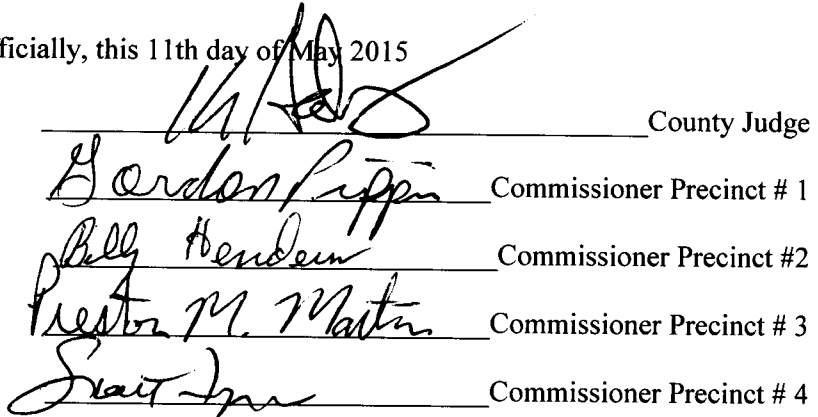 fficially, this 11th day of May 2015
County Judge
Gordon Pippin Commissioner Precinct # 1
Billy Commissioner Precinct #2
Preston M. Martin Commissioner Precinct # 3
Commissioner Precinct # 4